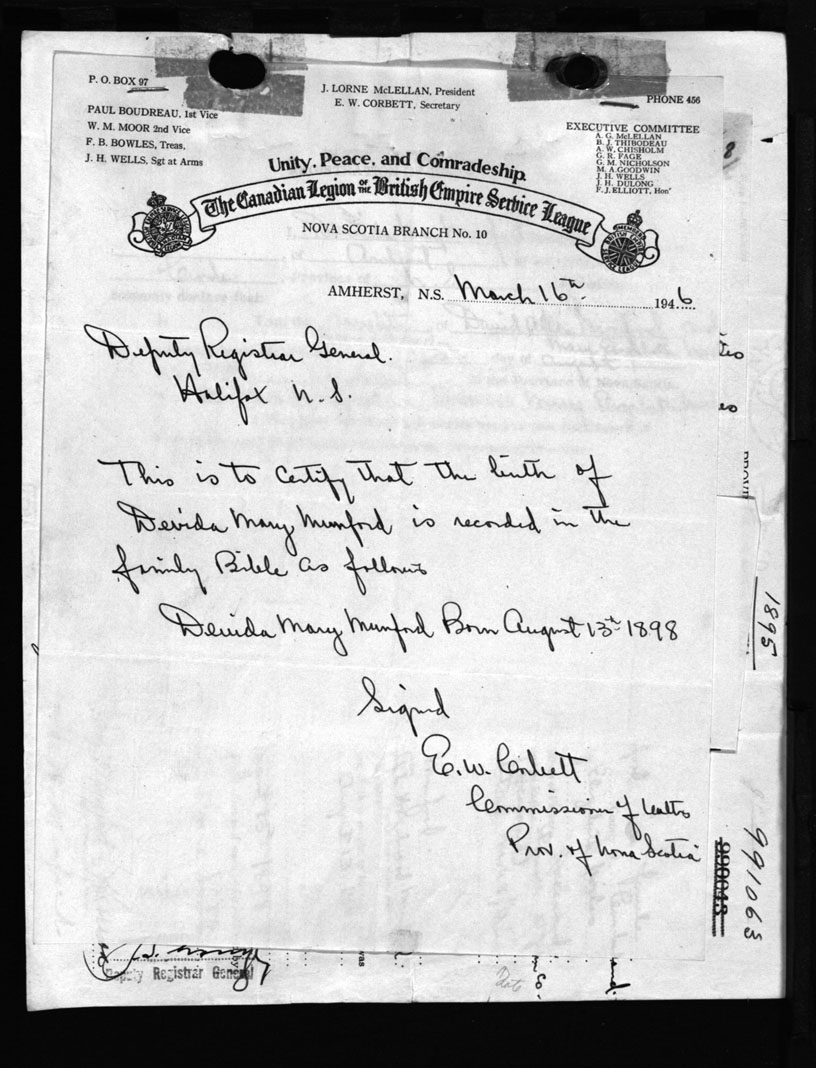 P. O. BOX 97
PAUL BOUDREAU, 1st Vice
W. M. MOOR 2nd Vice
F. B. BOWLES, Treas,
J. H. WELLS, Sgt at Arms
J. LORNE McLELLAN, President
E. W. CORBETT, Secretary
PHONE 456
EXECUTIVE COMMITTEE
A. G. McLELLAN
B. J. THIBODEAU
A. W. CHISHOLM
G. R. PAGE
G. M. NICHOLSON
M. A. GOODWIN
J. H. WELLS
J. H. DULONG
F. J. ELLIOTT, Hon'
8
Unity, Peace, and Comradeship.
The Canadian Legion OF THE British Empire Service League
NOVA SCOTIA BRANCH No. 10
AMHERST, N.S. March 16th. 1946
Deputy Registrar General.
Halifax N. S.
This is to Certify that the birth of
Devida Mary Mumford is recorded in the
family Bible as follows
Devida Mary Mumford Born August 13th 1898
Signed
E. W. Corbett
Commissioner of Oaths
Prov. of Nova Scotia
1895
991063
990043
Deputy Registrar General
by
was
Date